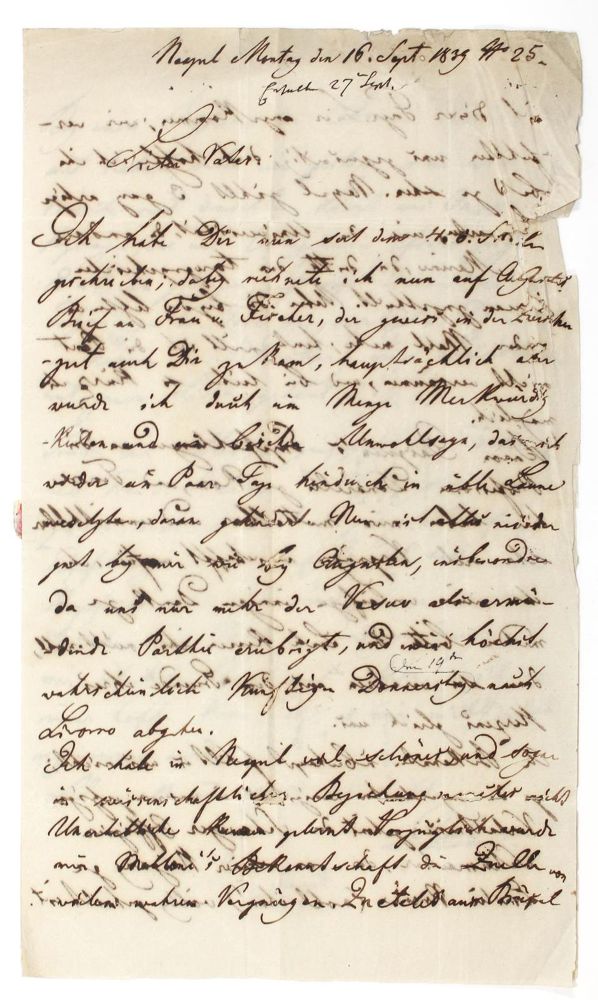 Neapel Montag den 16. Sept 1839 No 25.
Erhalten 27t Sept.
Vater
Ich habe Dir nun seit dem 4. d. M.
geschrieben; dabey rechnete ich nun auf Augustens
Brief an Frau v. Fischer, der gewiss in der Zwischen
-zeit auch Dir zukam, hauptsächlich aber
wurde ich durch ein Menge Merkwürdig
-keiten und ein leichtes Unwohlseyn, das mich
wieder ein Paar Tage hindurch in üble Laune
versetzte, daran gehindert. Nun ist alles wieder
gut bey mir wie bey Augusten, insbesondere
da uns nur mehr der Vesuv als ermü-
dende Parthie erübrigt, und wir höchst
den 19ten
wahrscheinlich künftigen Donnerstag nach
Livorno abgehen.
Ich habe in Neapel viel schönes und sogar
in wissenschaftlicher Beziehung nicht
Unerhebliche gelernt. Vorzüglich wurde
mir Melloni's Bekanntschaft die Quelle von
vielem wahren Vergnügen. Quetelet aus Brüssel